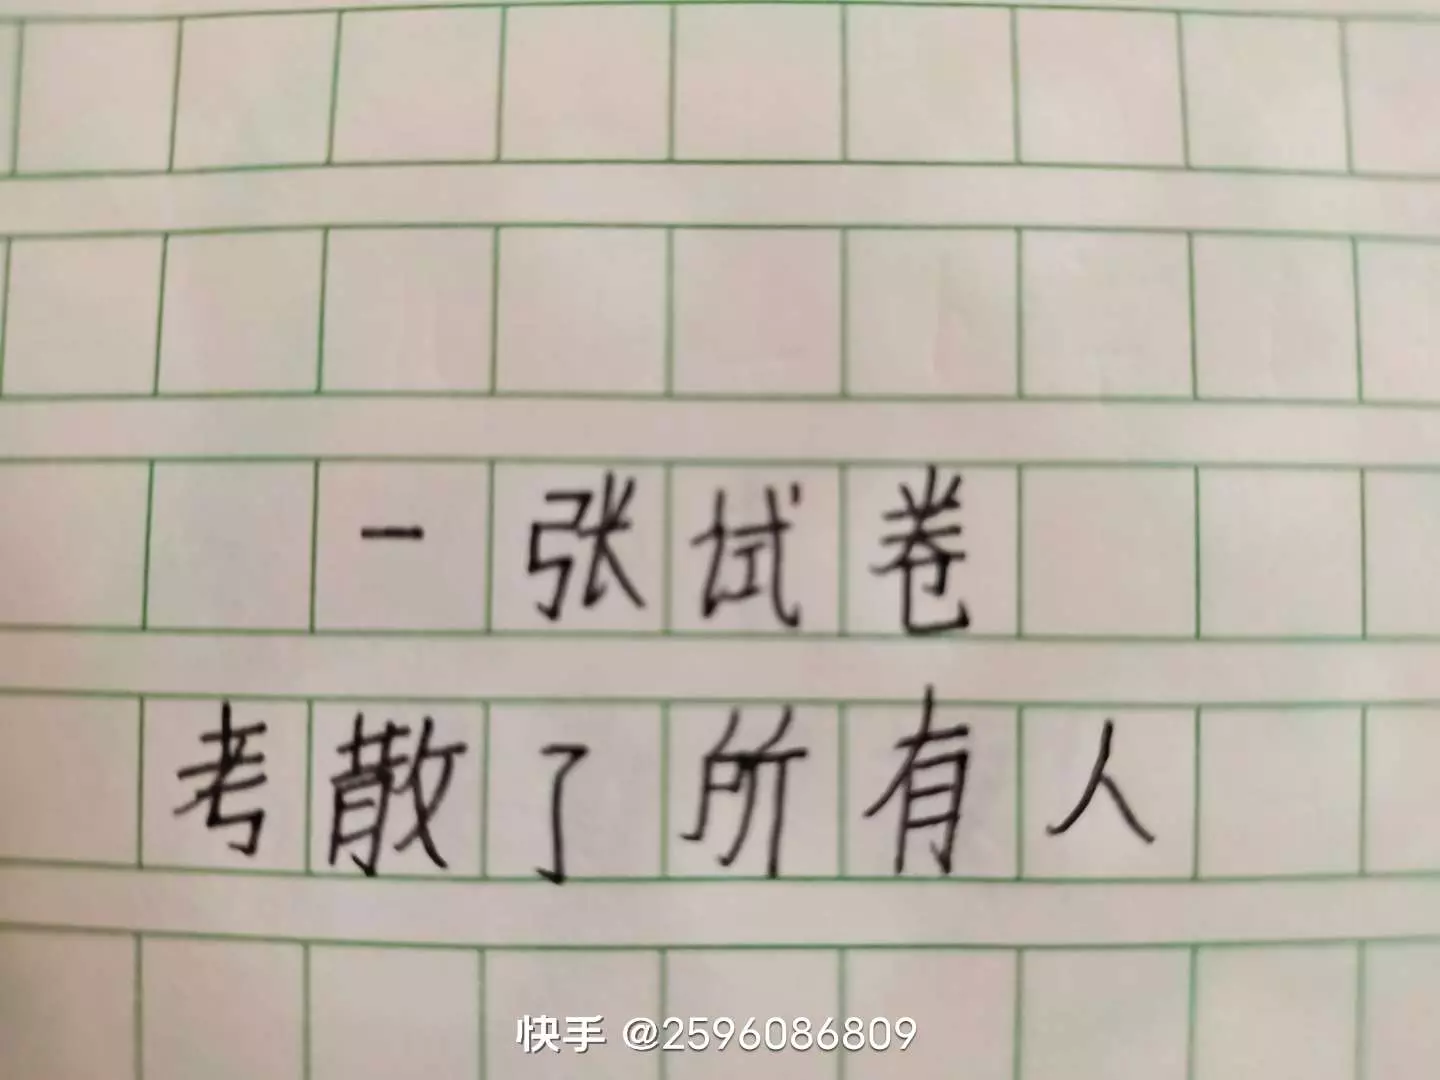 一张试卷
考散了所有人
快手 @2596086809